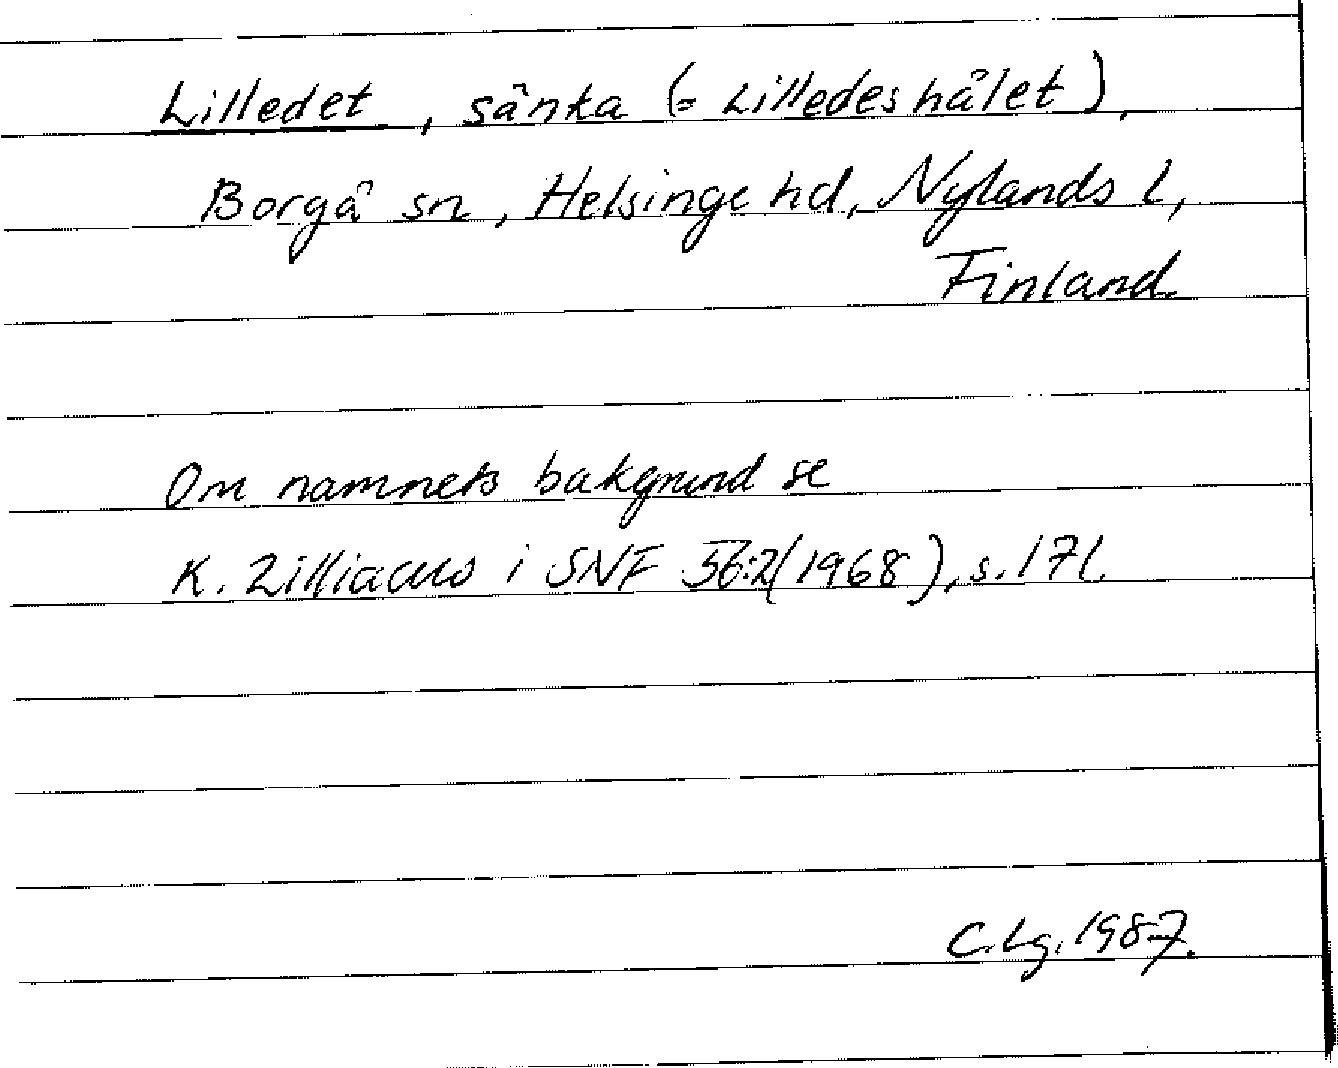 Lilledet, sänka (= Lilledeshålet),
Borgå sn, Helsinge hd, Nylands l,
Finland.
Om namnets bakgrund se
K. Zilliacus i SNF 56:2(1968), s. 171.
C.Lg. 1987.